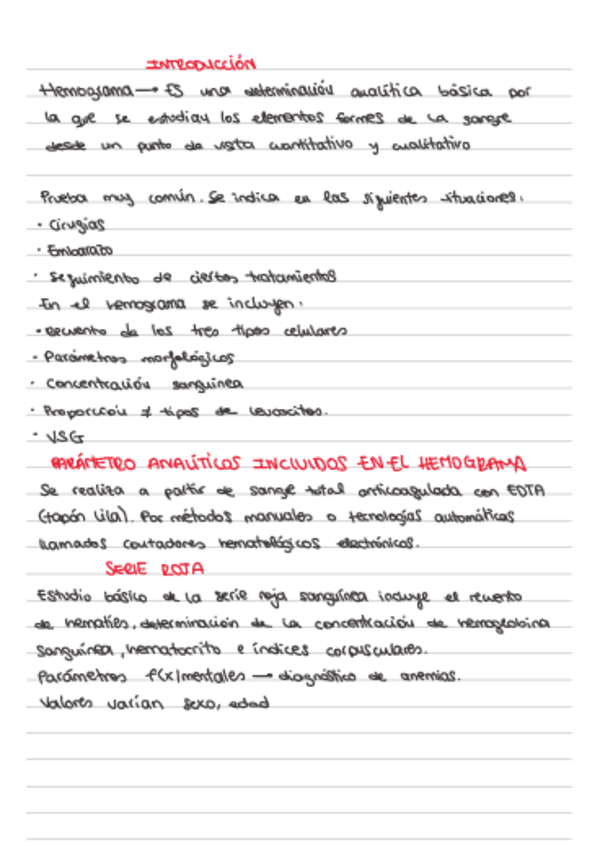 INTRODUCCIÓN
Hemograma → Es una determinación analítica básica por
la que se estudian los elementos formes de la sangre
desde un punto de vista cuantitativo y cualitativo
Prueba muy común. Se indica en las siguientes situaciones:
· Cirugías
· Embarazo
· Seguimiento de ciertos tratamientos
En el hemograma se incluyen:
· Recuento de los tres tipos celulares
· Parámetros morfológicos
· Concentración sanguínea
· Proporción ≠ tipos de leucocitos.
· VSG
PARÁMETRO ANALÍTICOS INCLUIDOS EN EL HEMOGRAMA
Se realiza a partir de sangre total anticoagulada con EDTA
(tapón lila). Por métodos manuales o tecnologías automáticas
llamados contadores hematológicos electrónicos.
SERIE ROJA
Estudio básico de la serie roja sanguínea incluye el recuento
de hematíes, determinación de la concentración de hemoglobina
sanguínea, hematocrito e índices corpusculares.
Parámetros f(x)mentales → diagnóstico de anemias.
Valores varían sexo, edad